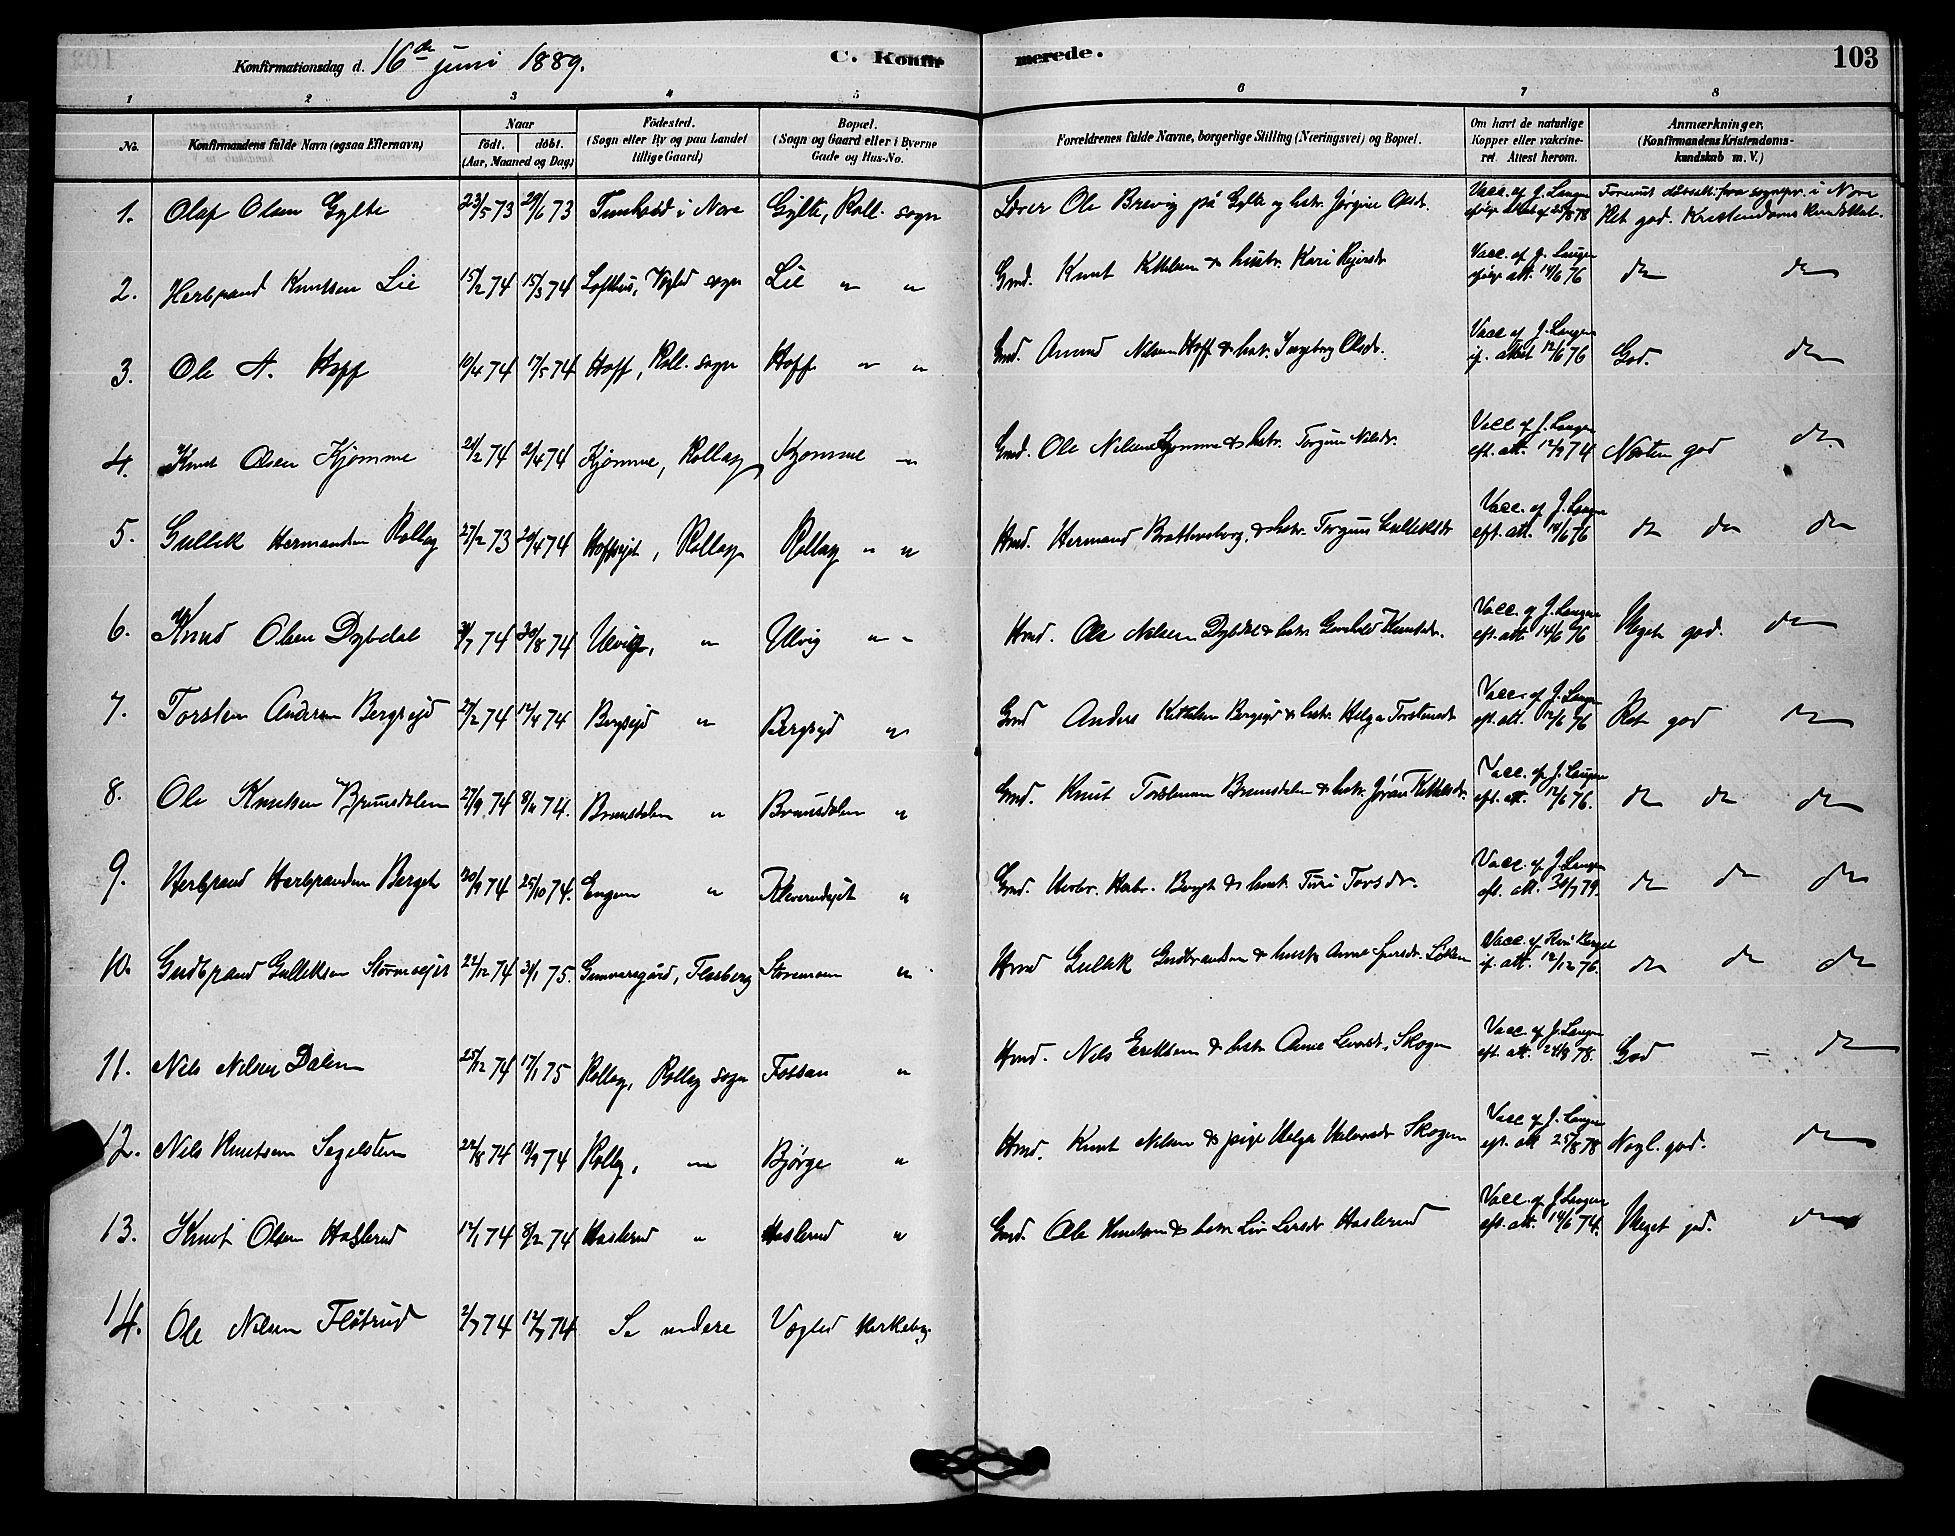 Konfirmationsdag d. 16de juni 1889.
C. Konfirmerede.
103
1 2 3 4 5 6 7 8
No.
Konfirmandens fulde Navn (ogsaa Efternavn)
Naar
födt. döbt.
(Aar, Maaned og Dag)
Födested.
(Sogn eller By og paa Landet
tillige Gaard)
Bopæl.
(Sogn og Gaard eller i Byerne
Gade og Hus-No.
Forældrenes fulde Navne, borgerlige Stilling (Næringsvei) og Bopæl.
Om havt de naturlige
Kopper eller vakcine-
ret. Attest herom.
Anmærkninger.
(Konfirmandens Kristendoms-
kundskab m. V.)
1. Olaf Olsen Gylte 23/5 73 29/6 73 i Nore Gylte, Roll. sogn Lærer Ole Brevig på Gylte og hstr. Jørgine Olsdr. Vacc. af J. Langen
Ret god. Kristendoms kundskab.
2. Herbrand Knutsen Lie 15/2 74 15/3 74 Lofthus, Vegled sogn Lie " " Gmd. Knut Kittelsen & hustr. Kari Vacc. af J. Langen
att. 14/6 76 do do
3. Ole A. Hoff 10/4 74 17/5 74 Hoff, Roll. sogn Hoff " " Gmd. Amund Nilsen Hoff & hstr. Ingeborg Olsdr. Vacc. af J. Langen
attest 12/6 76 God. do
4. Knud Olsen Kjømme 21/2 74 2/4 74 Kjømme, Rollag Kjømme " Gmd. Ole Nilsen Kjømme & hstr. Torgun Nilsdr. Vacc. af J. Langen
eft. att. 12/9 74 Næsten god do
5. Gullik Hermandsen Rollag 27/12 73 20/4 74 Rollag Rollag " " Hmd. Hermand & hstr. Torgun Gulliksdr. Vacc. af J. Langen
eft. att. 14/6 76 do do do
6. Knud Olsen Dybdal 31/7 74 30/8 74 Ulvig, " Ulvig " " Hmd. Ole Nilsen Dybdal & hstr. Gunhild Knutsdr. Vacc. af J. Langen
eft. att. 14/6 76 Meget god. do
7. Torsten Andersen Bergsejd 27/2 74 12/4 74 Bergsejd " Bergsejd " Gmd Anders Kittelsen Bergsejd & hstr. Helga Torstensdr. Vacc. af J. Langen
eft. att. 12/6 76 Ret god do
8. Ole Knutsen Bruusdalen 27/9 74 8/11 74. Bruusdalen " Bruusdalen " Gmd. Knut Torstensen Bruusdalen & hstr. Jøran Kittelsdr. Vacc. af J. Langen
eft. att. 12/6 76. do do do
9. Herbrand Herbrandsen Berget 30/9 74 25/10 74. Engen " " Gmd. Herbr. Herbr. Berget & hustr. Turi Torsdr. Vacc. af J. Langen
eft. att. 30/7 79. do do do
10. Gudbrand Gulliksen 22/12 74 31/1 75. Flesberg Storemoen " Hmd Gullik Gudbrandsen & hustr. Anne Løken Vacc. af
att. 12/12 76. do do do
11. Nils Nilsen Dalen 25/12 74 17/1 75 Rollag, Rollag sogn Fossan " Hmd. Nils Eriksen & hstr Anne Skogen Vacc. af J. Langen
eft. att. 24/8 78. God - do
12. Nils Knutsen Segelsten 22/8 74 13/9 74 Rollag, " Bjørge " Hmd. Knut Nilsen & pige Helga Halvorsdr. Skogen Vacc af J. Langen
eft. att 25/8 78 Nogl. god. do
13. Knut Olsen Haslerud 12/1 74 8/2 74 Haslerud " Haslerud " Gmd. Ole Knutsen & hstr Liv Larsdr Haslerud Vacc. af J Langen
eft. att. 14/6 74. Meget god. do
14. Ole Nilsen Fløtrud 2/7 74 12/7 74 Se nedere Vegled